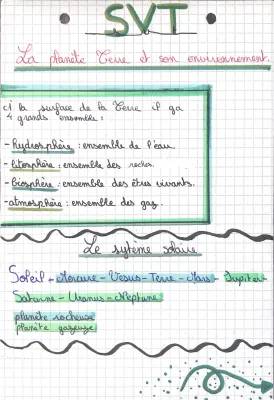 SVT
La planète Terre et son environnement.
à la surface de la Terre il y a
4 grands ensemble :
- hydrosphère : ensemble de l'eau.
- litosphère : ensemble des roches.
- biosphère : ensemble des êtres vivants.
- atmosphère : ensemble des gaz.
Le sytème solaire
Soleil - Mercure - Vesus - Terre - Mars - Jupiter -
Saturne - Uranus - Neptune
planète rocheuse
planète gazeuze